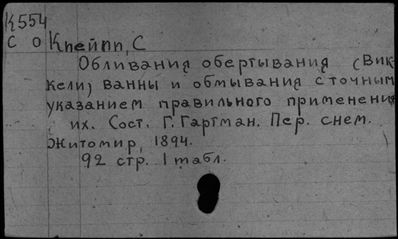 К554
С О Кнейпп, С
Обливания обертывания (Вик-
кели) ванны и обмывания с точным
указанием правильного применения
их. Сост. Г. Гартман. Пер. с нем.
Житомир, 1894.
92 стр. 1 табл.